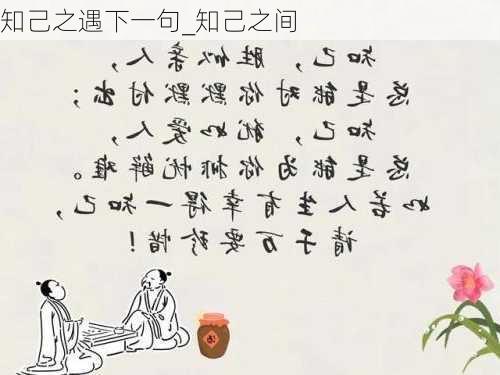 知己之遇下一句_知己之间
知己，胜似亲人，
总是能对你默默付出；
知己，犹如爱人，
总是能为你排忧解难。
如若人生有幸得一知己，
请千万要珍惜！